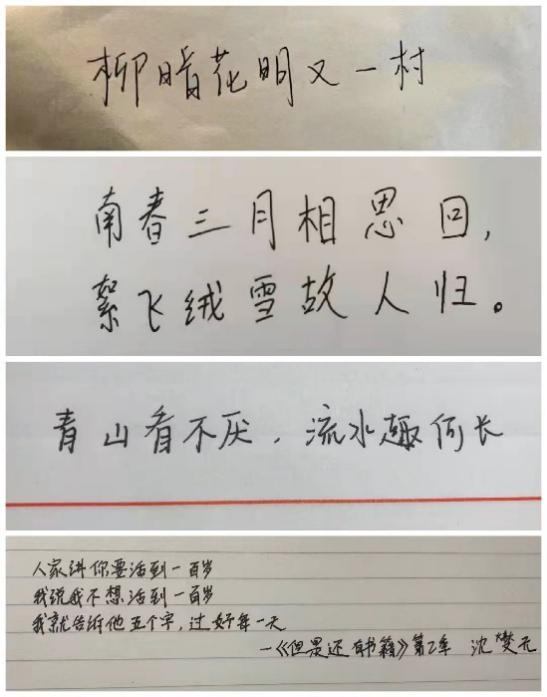 柳暗花明又一村
南春三月相思回，
絮飞绒雪故人归。
青山看不厌，流水趣何长
人家讲你要活到一百岁
我说我不想活到一百岁
我就告诉他五个字，过好每一天
—《但是还有书籍》第2季 沈燮元